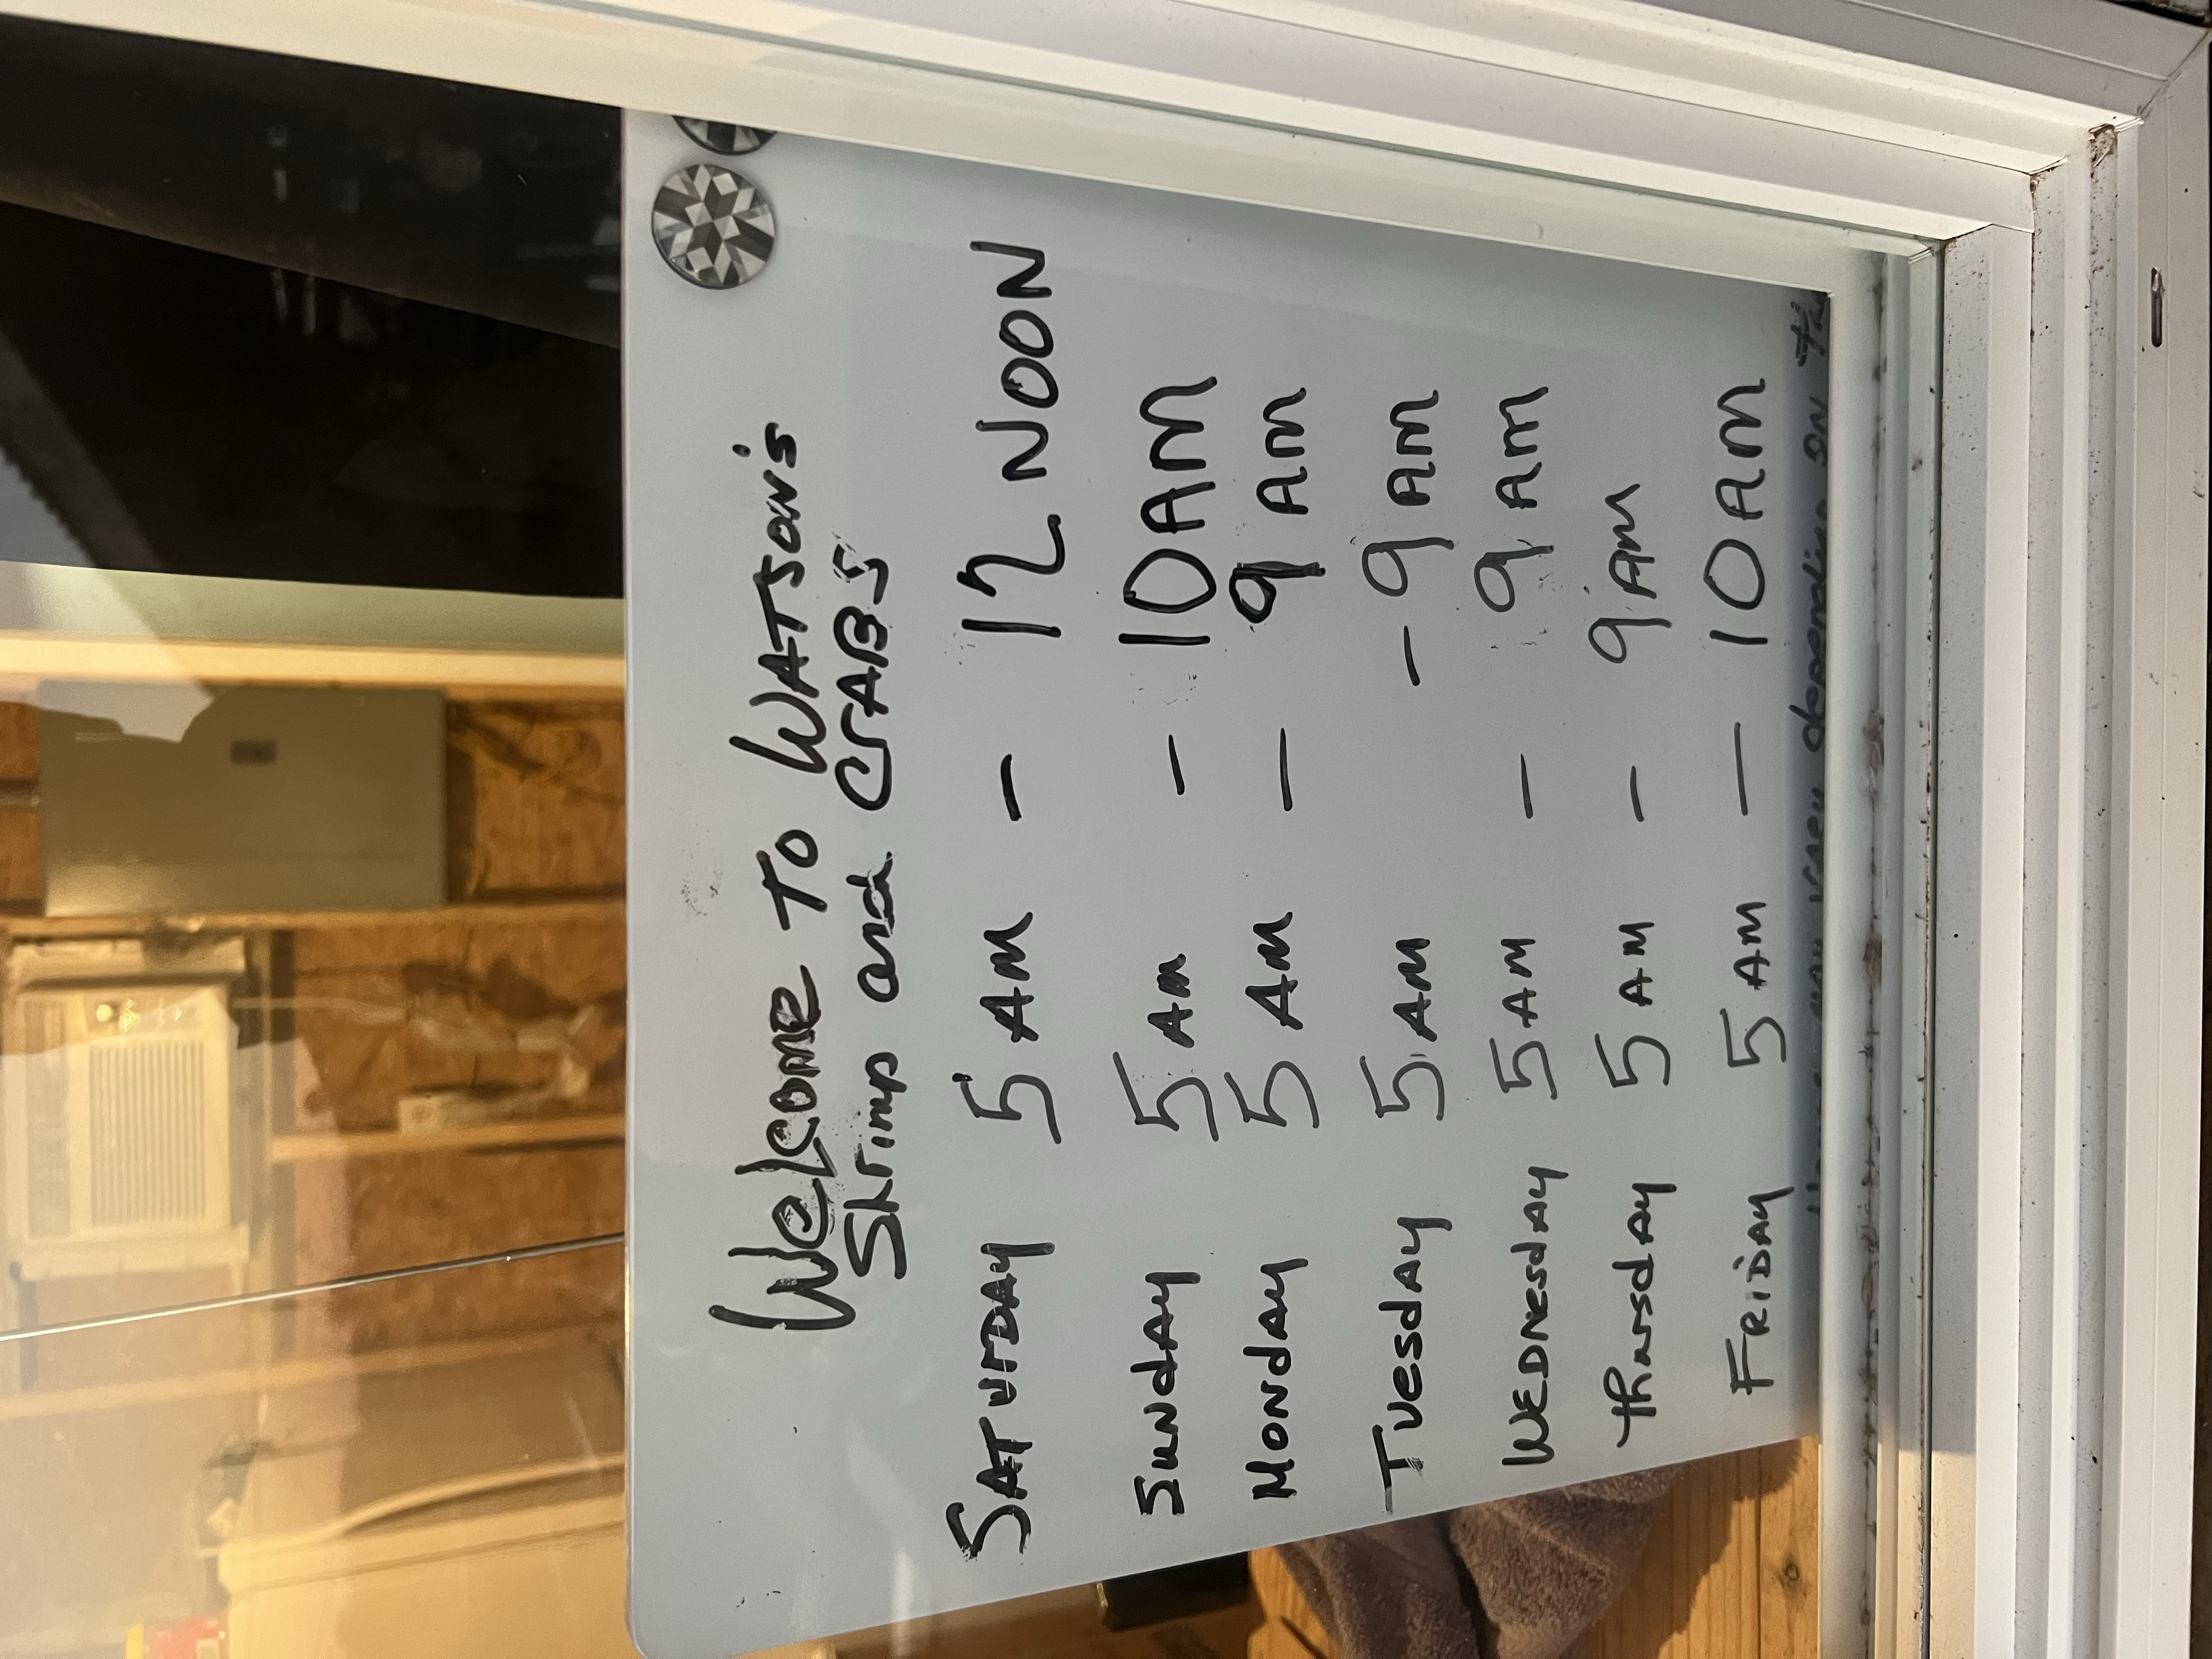 Welcome To WATSON'S
Shrimp and CrABS
SATUrDAY 5 AM - 12 NOON
SunDAY 5 Am - 10AM
MONDAY 5 AM - 9 AM
TUesdAY 5 AM - 9 AM
WEDNesdAY 5 AM - 9 AM
thursdAY 5 AM - 9 AM
FRiDAY 5 AM - 10 AM
Hours may vary depending on the